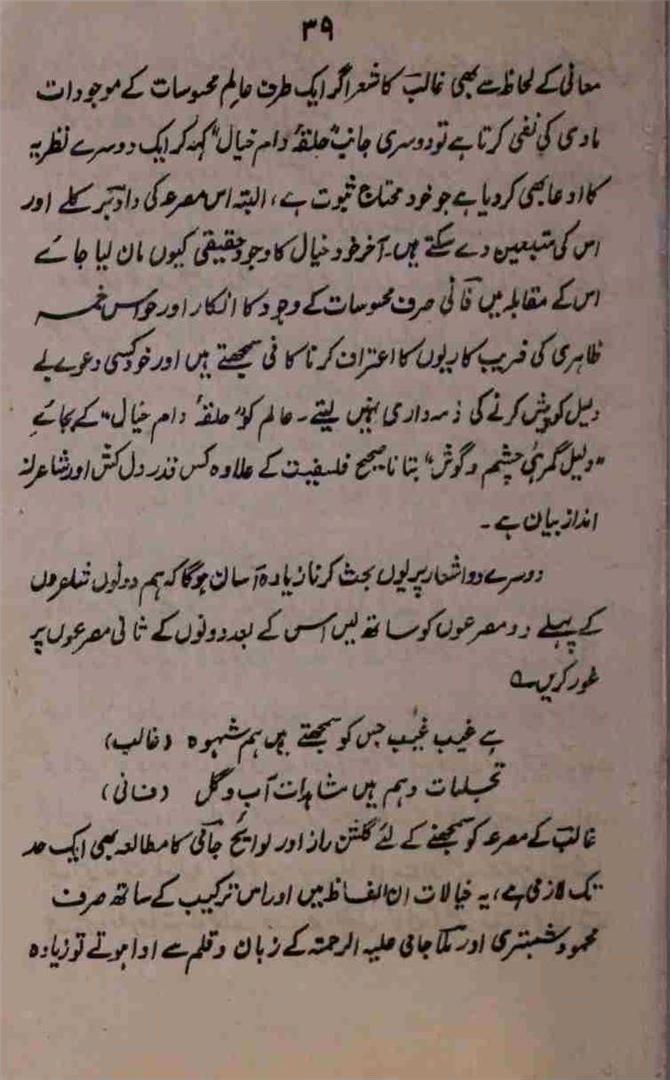 ۳۹
معانی کے لحاظ سے بھی غالبؔ کا شعر اگر ایک طرف عالمِ محسوسات کے موجودات
مادی کی نفی کرتا ہے تو دوسری جانب "حلقۂ دام خیال" کہہ کر ایک دوسرے نظریہ
کا ادعا بھی کر دیا ہے جو خود محتاج ثبوت ہے، البتہ اس مصرعہ کی داد برکلے اور
اس کی متبعین دے سکتے ہیں۔ آخر خود خیال کا وجود حقیقی کیوں مان لیا جائے
اس کے مقابلہ میں فانؔی صرف محسوسات کے وجود کا انکار اور حواس خمسہ
ظاہری کی فریب کاریوں کا اعتراف کرنا کافی سمجھتے ہیں اور خود کسی دعوے بے
دلیل کو پیش کرنے کی ذمہ داری نہیں لیتے۔ عالم کو "حلقۂ دام خیال" کے بجائے
"دلیل گمرہئ چشم و گوش" بتانا صحیح فلسفیت کے علاوہ کس قدر دل کش اور شاعرانہ
انداز بیان ہے۔
دوسرے دو اشعار پر یوں بحث کرنا زیادہ آسان ہوگا کہ ہم دونوں شاعروں
کے پہلے دو مصرعوں کو ساتھ لیں اس کے بعد دونوں کے ثانی مصرعوں پر
غور کریں ؎
ہے غیب غیب جس کو سمجھتے ہیں ہم شہود (غالب)
تجلیات وہم ہیں مشاہدات آب و گل (فانی)
غالبؔ کے مصرعہ کو سمجھنے کے لئے گلشن راز اور لوایح جامؔی کا مطالعہ بھی ایک حد
تک لازمی ہے، یہ خیالات ان الفاظ میں اور اس ترکیب کے ساتھ صرف
محمود شبستری اور ملّا جامی علیہ الرحمتہ کے زبان و قلم سے ادا ہوتے تو زیادہ